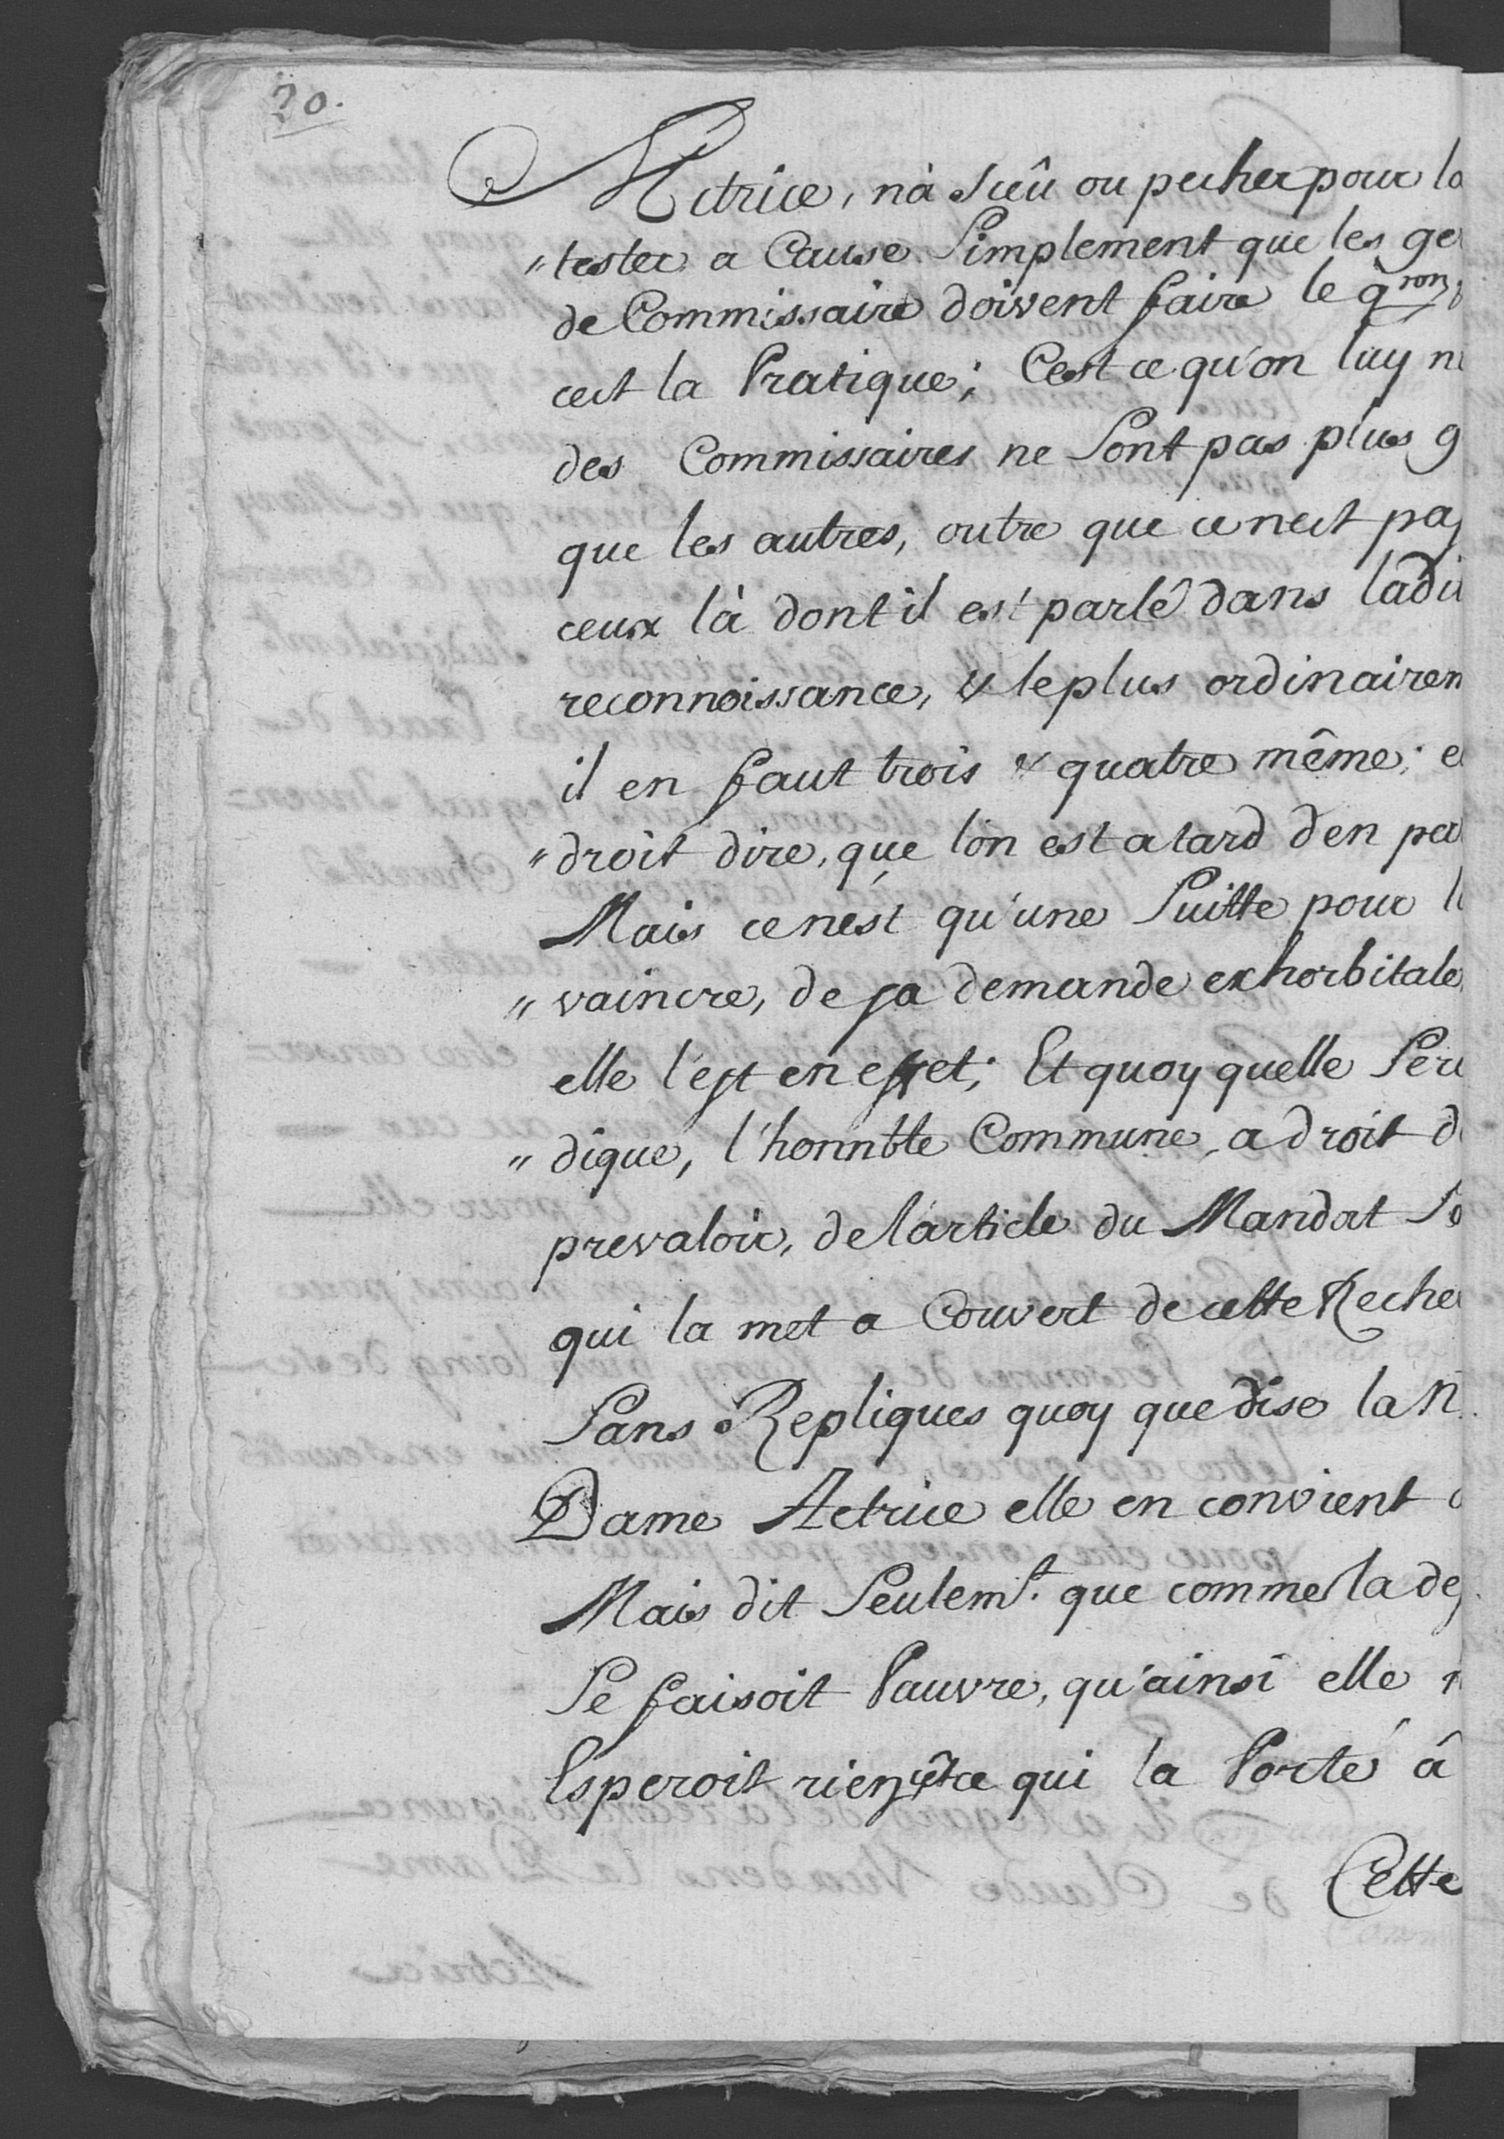 20.
Actrice, nà Sceû ou pecher pour la
„ tester a Cause Simplement que les ge
de Commissaire doivent faire le qron
cect la Pratique; Cest ce qu'on luy n
des Commissaires ne Sont pas plus g
que les autres, outre que ce nect pas
ceux là dont il est parlé dans ladi
reconnoissance, & le plus ordinairem
il en faut trois & quatre même; e
„ droit dire, que lon est a tard d'en pa
Mais ce nést qu'une Suitte pour l
„ vaincre, de sa demande exhorbitale,
elle l'est en effet; Et quoy quelle Ser
„ dique, l'honnble Commune, a droit d
prevaloir, de l'article du Mandat So
qui la met a Couvert de cette Reche
Sans Repliques quoy que dise la N.
Dame Actrice elle en convient
Mais dit Seulemt. que comme la de
Se faisoit Pauvre, qu'ainsi elle n
Esperoit rien, ce qui la Porté â
Cette